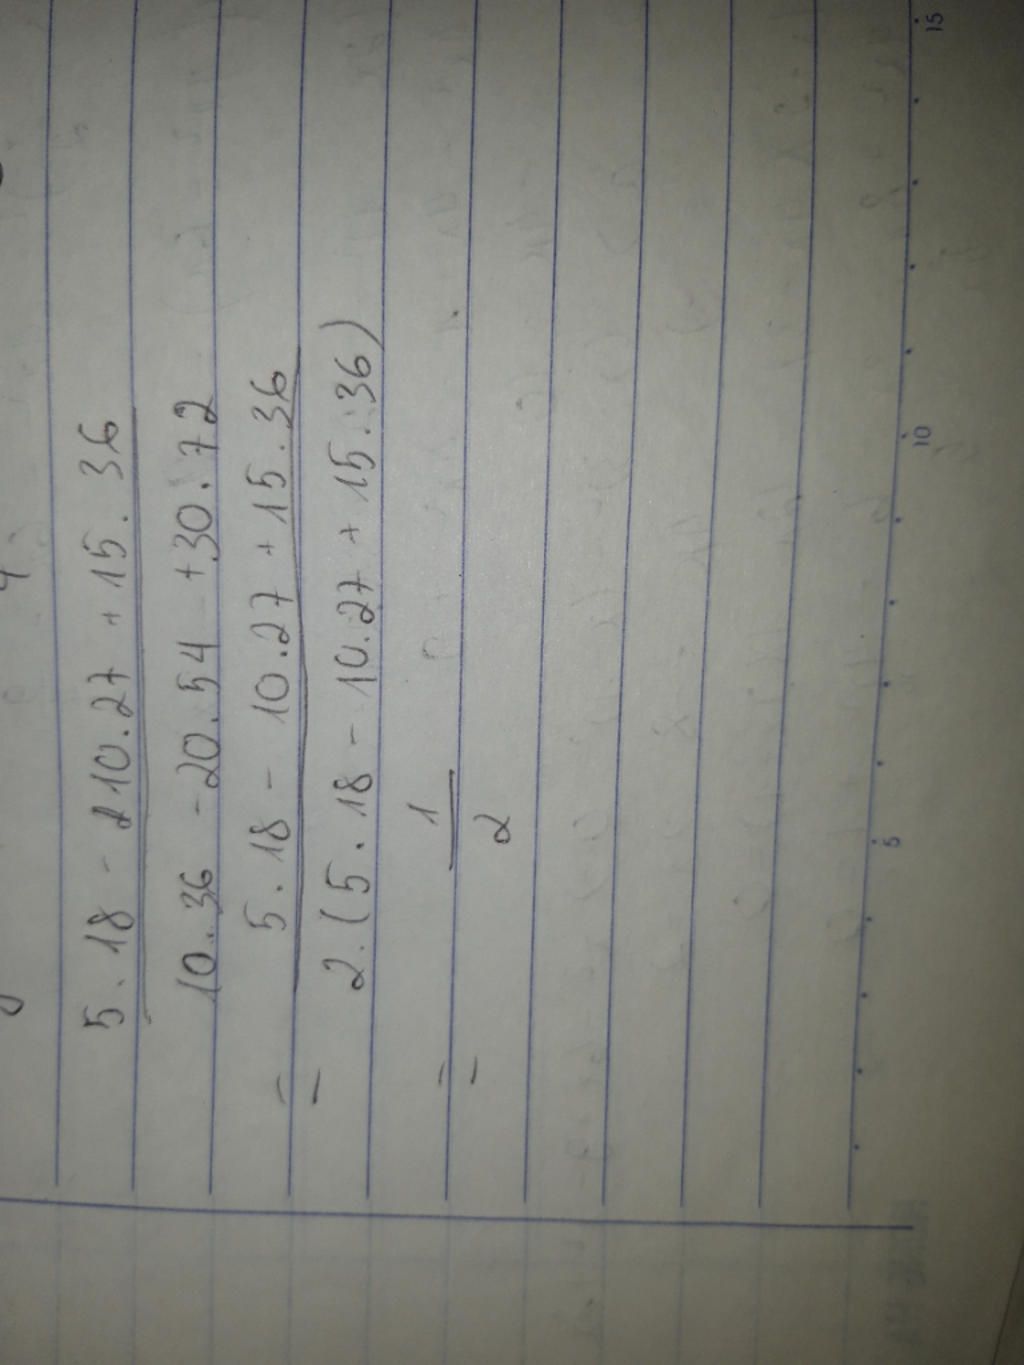 5 . 18 - 10.27 + 15 . 36
10 . 36 - 20.54 + 30.72
= 5 . 18 - 10.27 + 15 . 36
2 . (5 . 18 - 10.27 + 15 . 36)
= 1
2
5
10
15